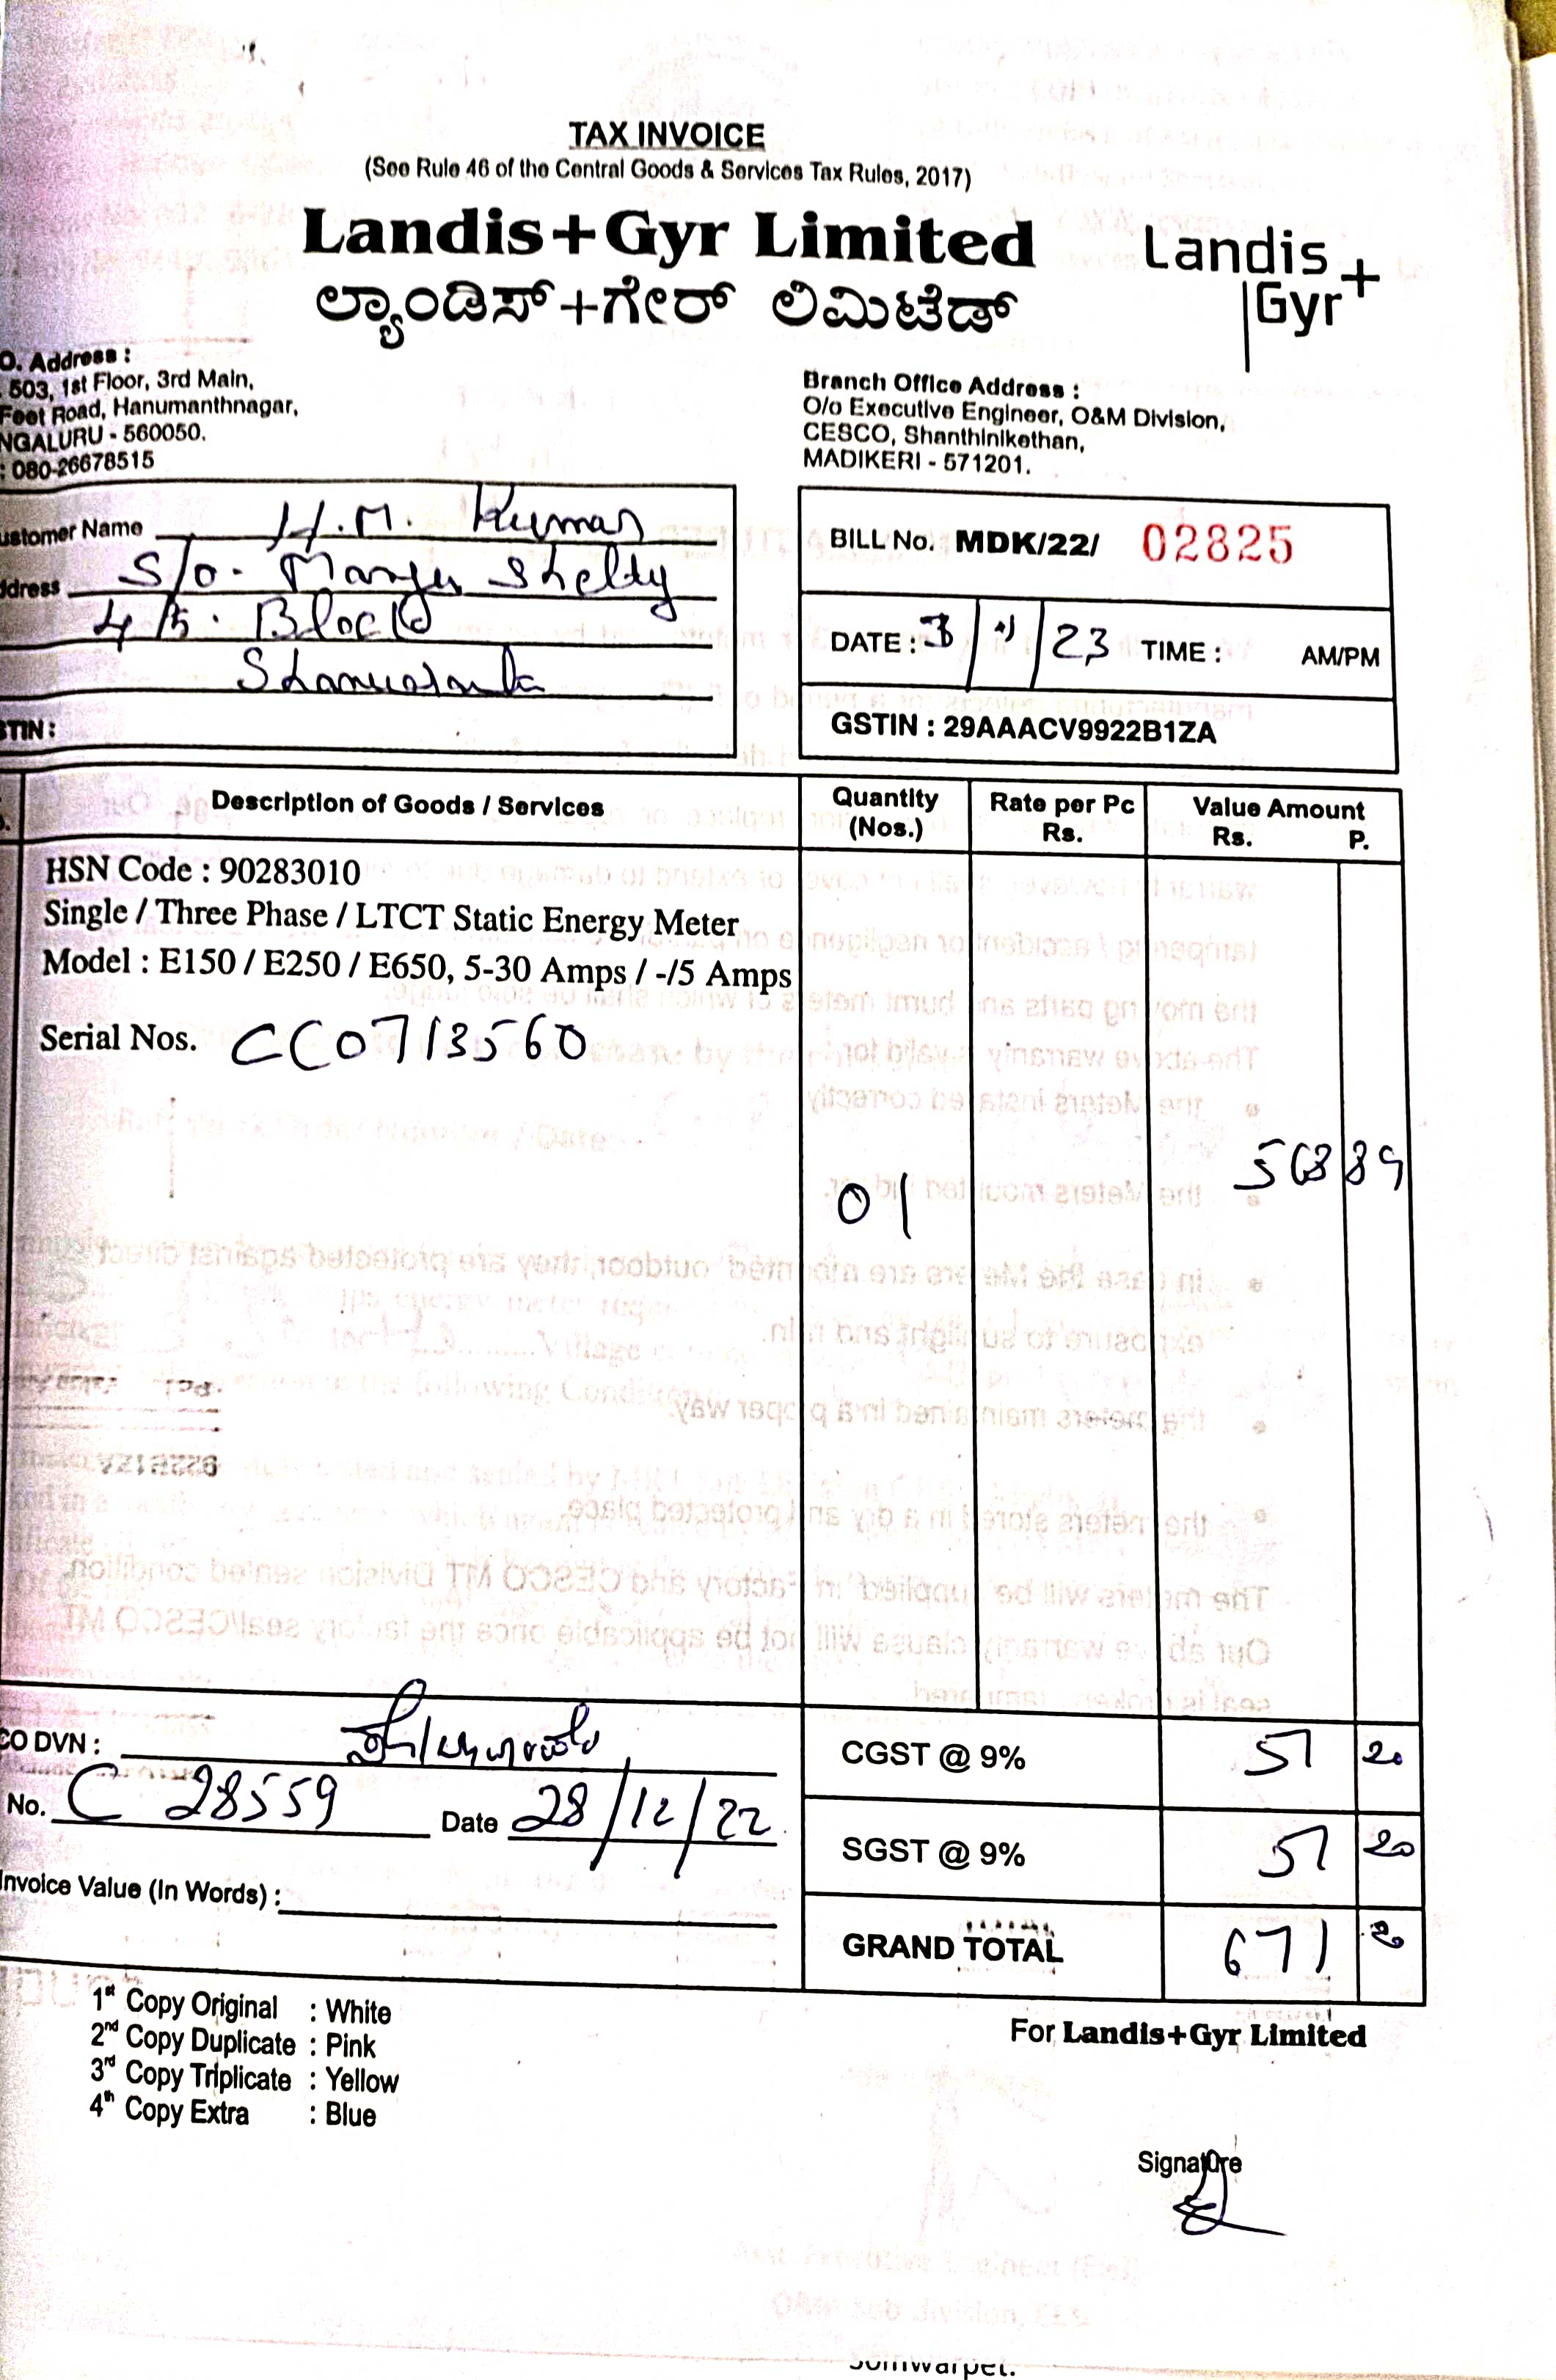 TAX INVOICE
(See Rule 46 of the Central Goods & Services Tax Rules, 2017)
Landis+Gyr Limited
ಲ್ಯಾಂಡಿಸ್+ಗೇರ್ ಲಿಮಿಟೆಡ್
Landis+
Gyr
O. Address :
503, 1st Floor, 3rd Main,
Feet Road, Hanumanthnagar,
NGALURU - 560050.
: 080-26678515
Branch Office Address :
O/o Executive Engineer, O&M Division,
CESCO, Shanthinikethan,
MADIKERI - 571201.
ustomer Name H.M. Kumar
ddress S/o. Manju Shetty
4/5. Block
STIN :
BILL No. MDK/22/ 02825
DATE : 3/ /23 TIME : AM/PM
GSTIN : 29AAACV9922B1ZA
Description of Goods / Services Quantity (Nos.) Rate per Pc Rs. Value Amount Rs. P.
HSN Code : 90283010
Single / Three Phase / LTCT Static Energy Meter
Model : E150 / E250 / E650, 5-30 Amps / -/5 Amps
Serial Nos. CC0713560
01 568 89
CO DVN :
No. C 28559 Date 28/12/22
Invoice Value (In Words) :
CGST @ 9% 51 20
SGST @ 9% 51 20
GRAND TOTAL 671 20
1st Copy Original : White
2nd Copy Duplicate : Pink
3rd Copy Triplicate : Yellow
4th Copy Extra : Blue
For Landis+Gyr Limited
Signature
Somwarpet.